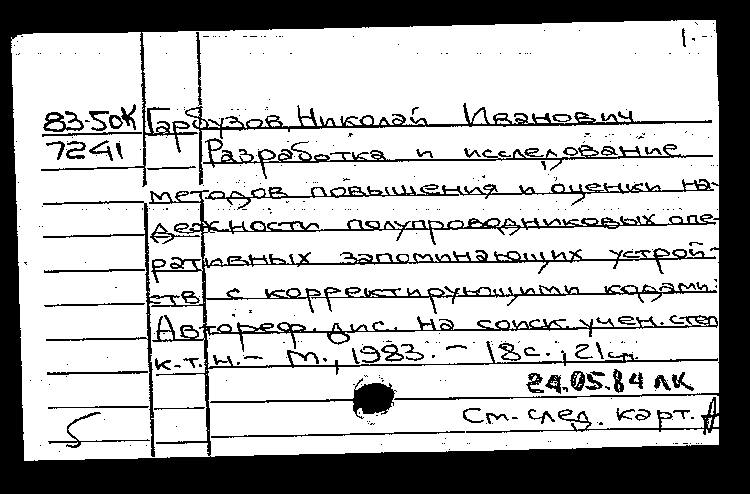 1.-
83-50К Гарбузов, Николай Иванович
7241 Разработка и исследование
методов повышения и оценки на-
дежности полупроводниковых опе-
ративных запоминающих устрой-
ств с корректирующими кодами:
Автореф. дис. на соиск. учен. степ
к.т.н. - М., 1983. - 18с.; 21см.
24.05.84 ЛК
См. след. карт. А
5